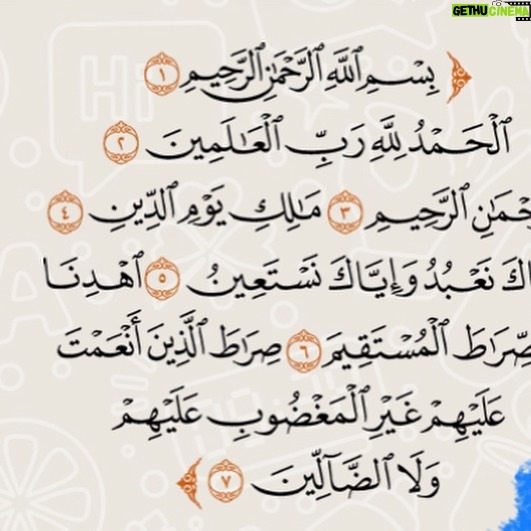 GETHU CINEMA
بِسْمِ ٱللَّهِ ٱلرَّحْمَٰنِ ٱلرَّحِيمِ ١
ٱلْحَمْدُ لِلَّهِ رَبِّ ٱلْعَٰلَمِينَ ٢
ٱلرَّحِيمِ ٣ مَٰلِكِ يَوْمِ ٱلدِّينِ ٤
نَعْبُدُ وَإِيَّاكَ نَسْتَعِينُ ٥ ٱهْدِنَا
ٱلْمُسْتَقِيمَ ٦ صِرَٰطَ ٱلَّذِينَ أَنْعَمْتَ
عَلَيْهِمْ غَيْرِ ٱلْمَغْضُوبِ عَلَيْهِمْ
وَلَا ٱلضَّآلِّينَ ٧
Hi